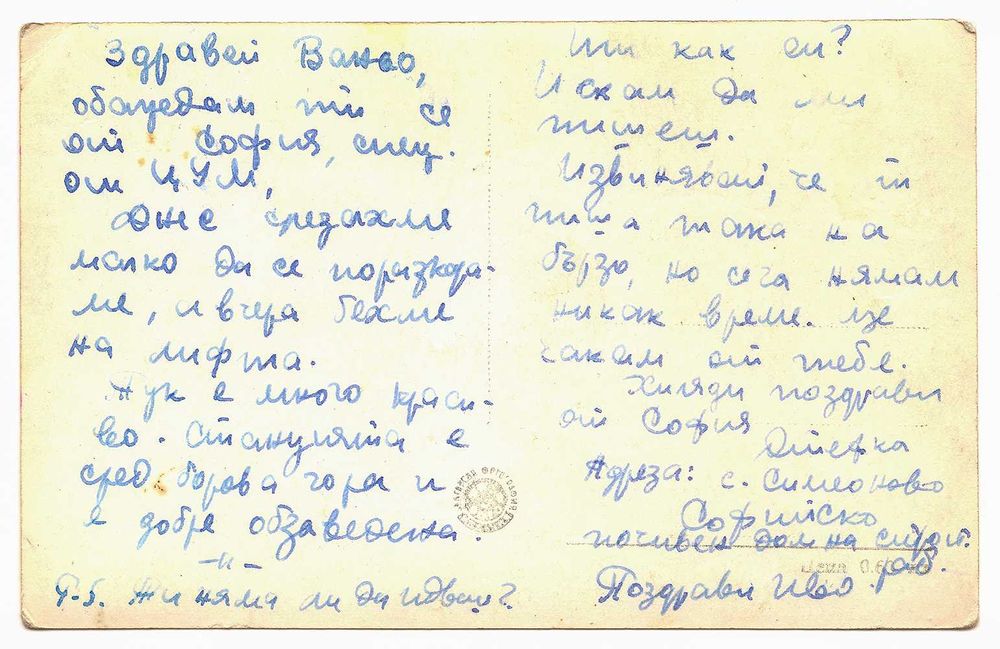 Здравей Ваньо,
обаждам ти се
от София, спец.
от ЦУМ,
малко да се поразхода-
ме, а вчера бехме
на лифта.
Тук е много краси-
во. Станцията е
сред борова гора и
е добре обзаведена.
-//-
P.S. Ти няма ли да идваш?
Ти как си?
Искам да ми
пишеш.
Извинявай, че ти
пиша така на
бързо, но сега нямам
никак време. Ще
чакам от тебе.
Хиляди поздрави
от София
Стефка
Адреза: с. Симеоново
Софийско
почивен дом на строит.
раб.
Цена 0.60
Поздрави Иво